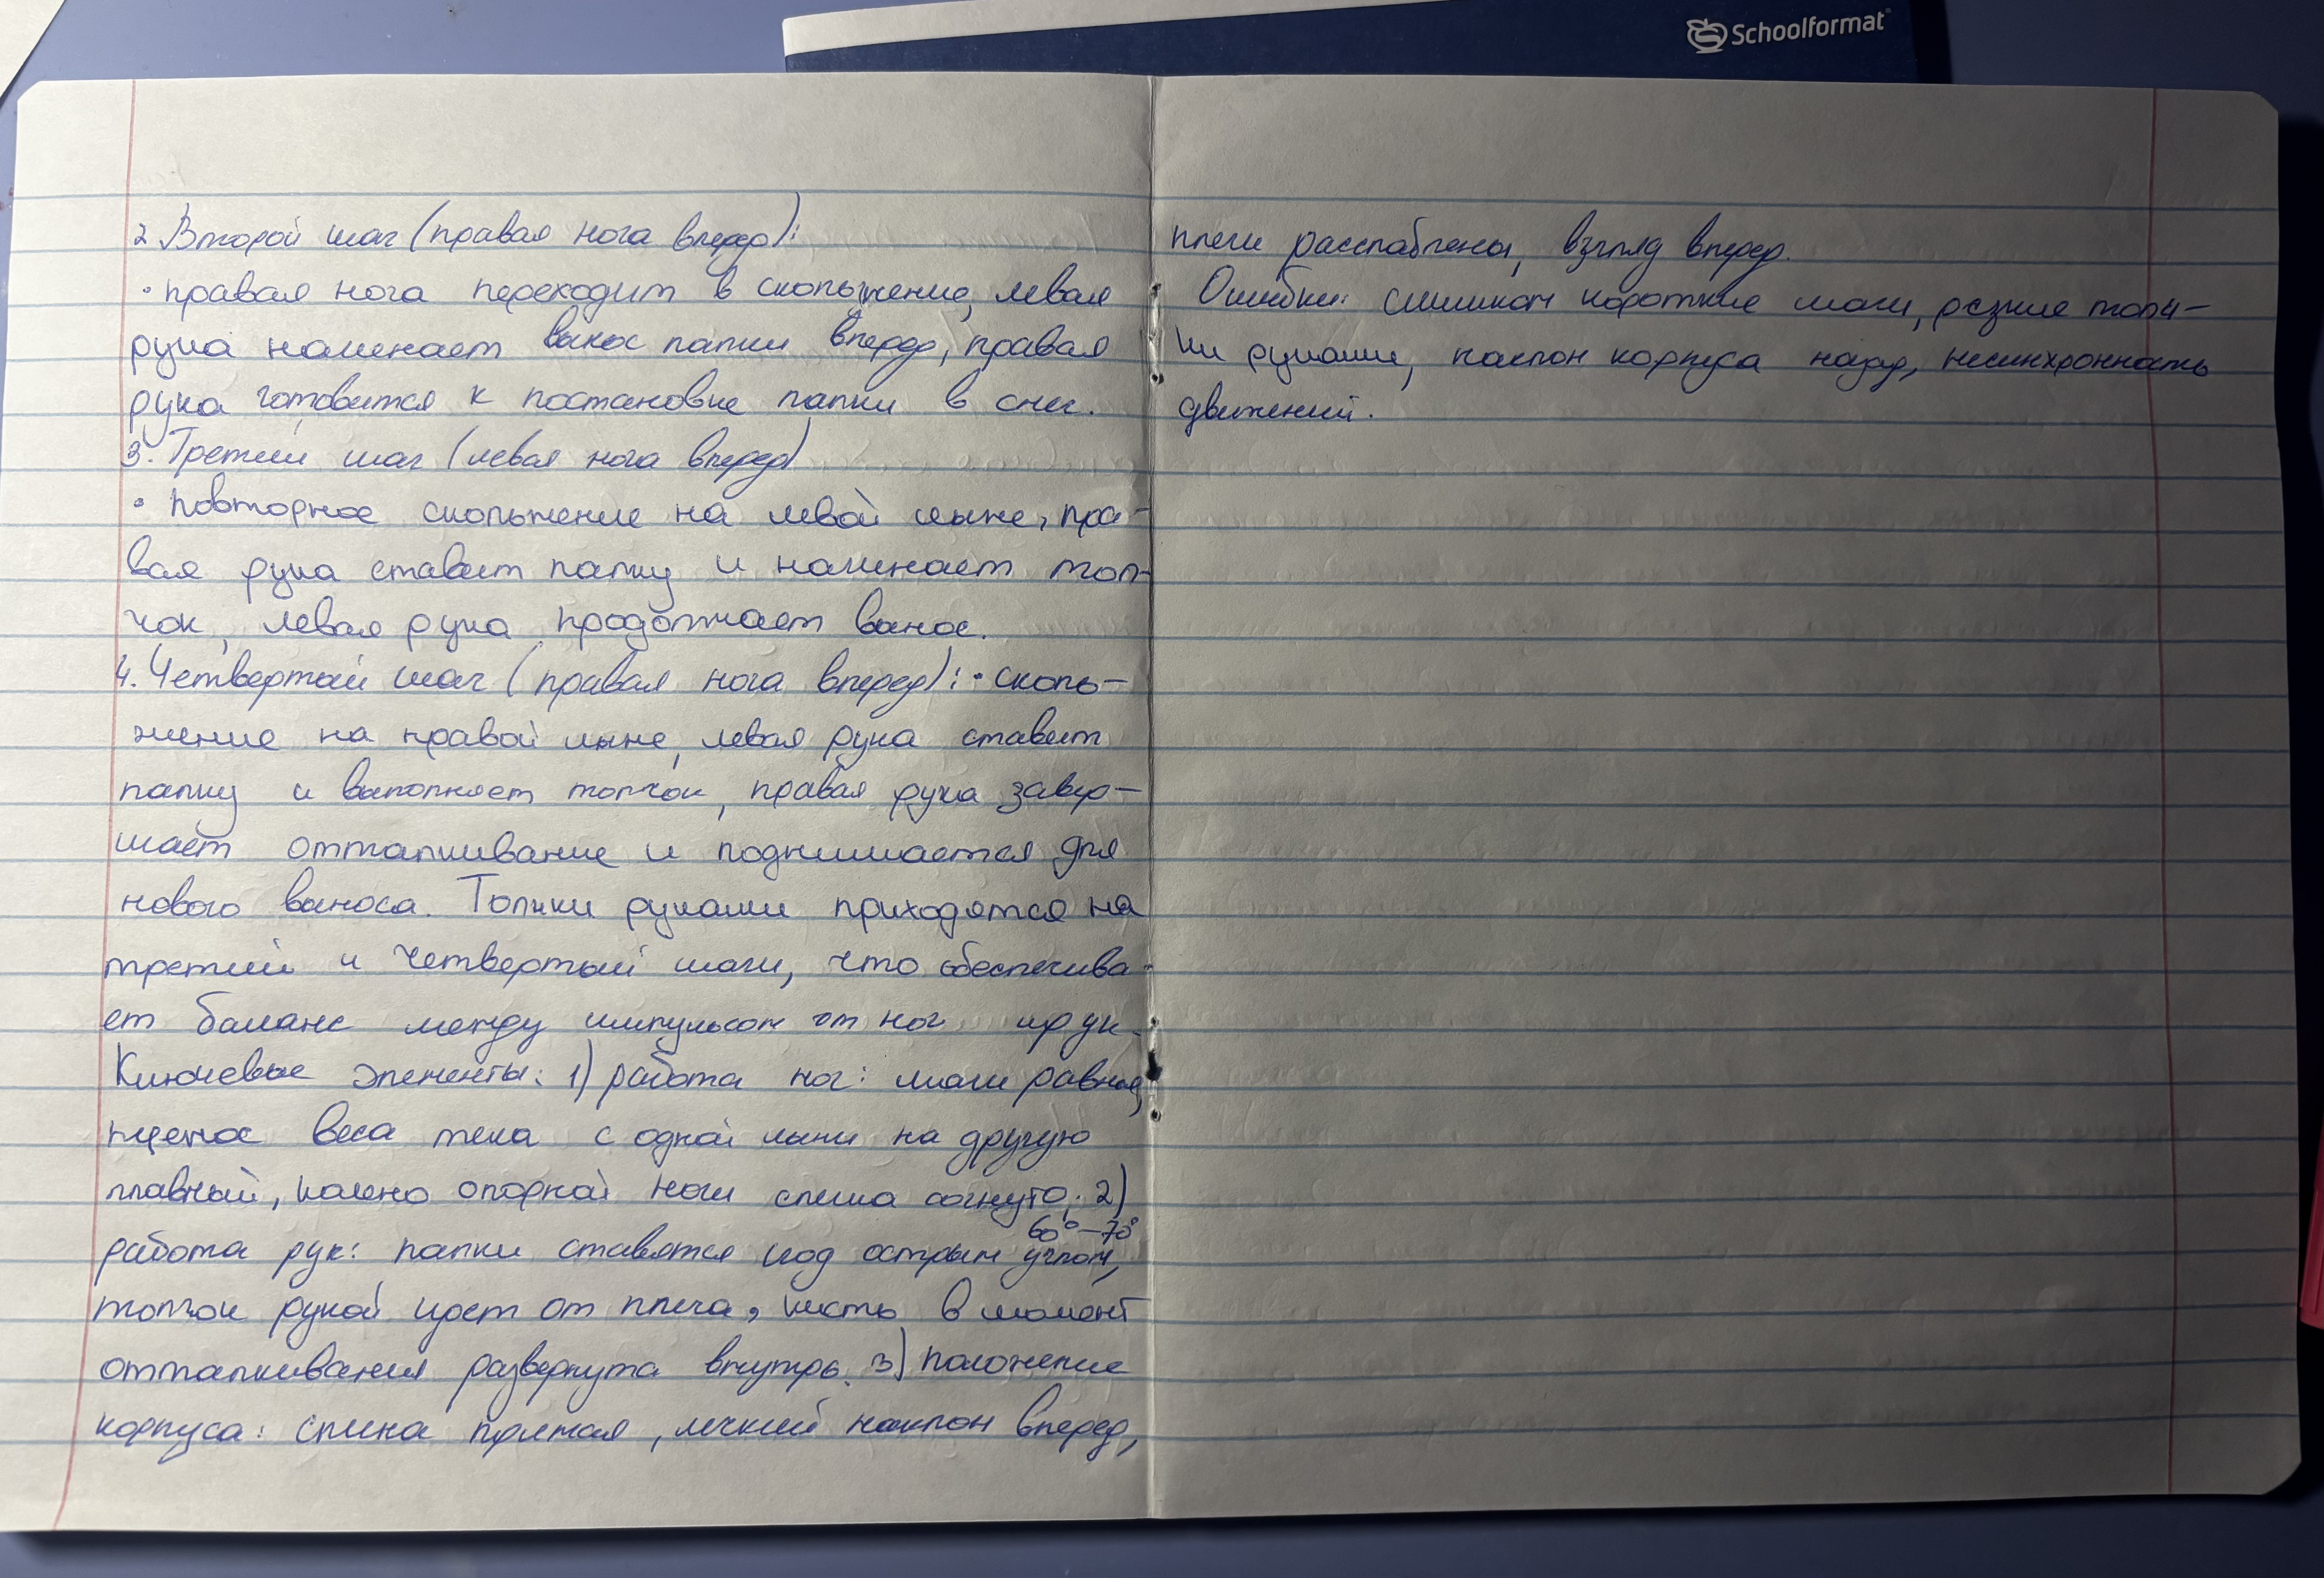 Schoolformat
2 Второй шаг (правая нога вперед):
• правая нога переходит в скольжение, левая
рука начинает вынос палки вперед, правая
рука готовится к постановке палки в снег.
3. Третий шаг (левая нога вперед)
• повторное скольжение на левой лыже, пра-
вая рука ставит палку и начинает тол-
чок, левая рука продолжает вынос.
4. Четвертый шаг (правая нога вперед): • сколь-
жение на правой лыже, левая рука ставит
палку и выполняет толчок, правая рука завер-
шает отталкивание и поднимается для
нового выноса. Толчки руками приходятся на
третий и четвертый шаги, что обеспечива-
ет баланс между импульсом от ног и рук.
Ключевые элементы: 1) работа ног: шаги равные,
веса тела с одной лыжи на другую
плавный, колено опорной ноги слегка согнуто; 2)
работа рук: палки ставятся под острым углом, 60°-70°
толчок рукой идет от плеча, кисть в момент
отталкивания развернута внутрь. 3) положение
корпуса: спина прямая, легкий наклон вперед,
плечи расслаблены, взгляд вперед.
Ошибки: слишком короткие шаги, резкие толч-
ки руками, наклон корпуса назад, несинхронность
движений.